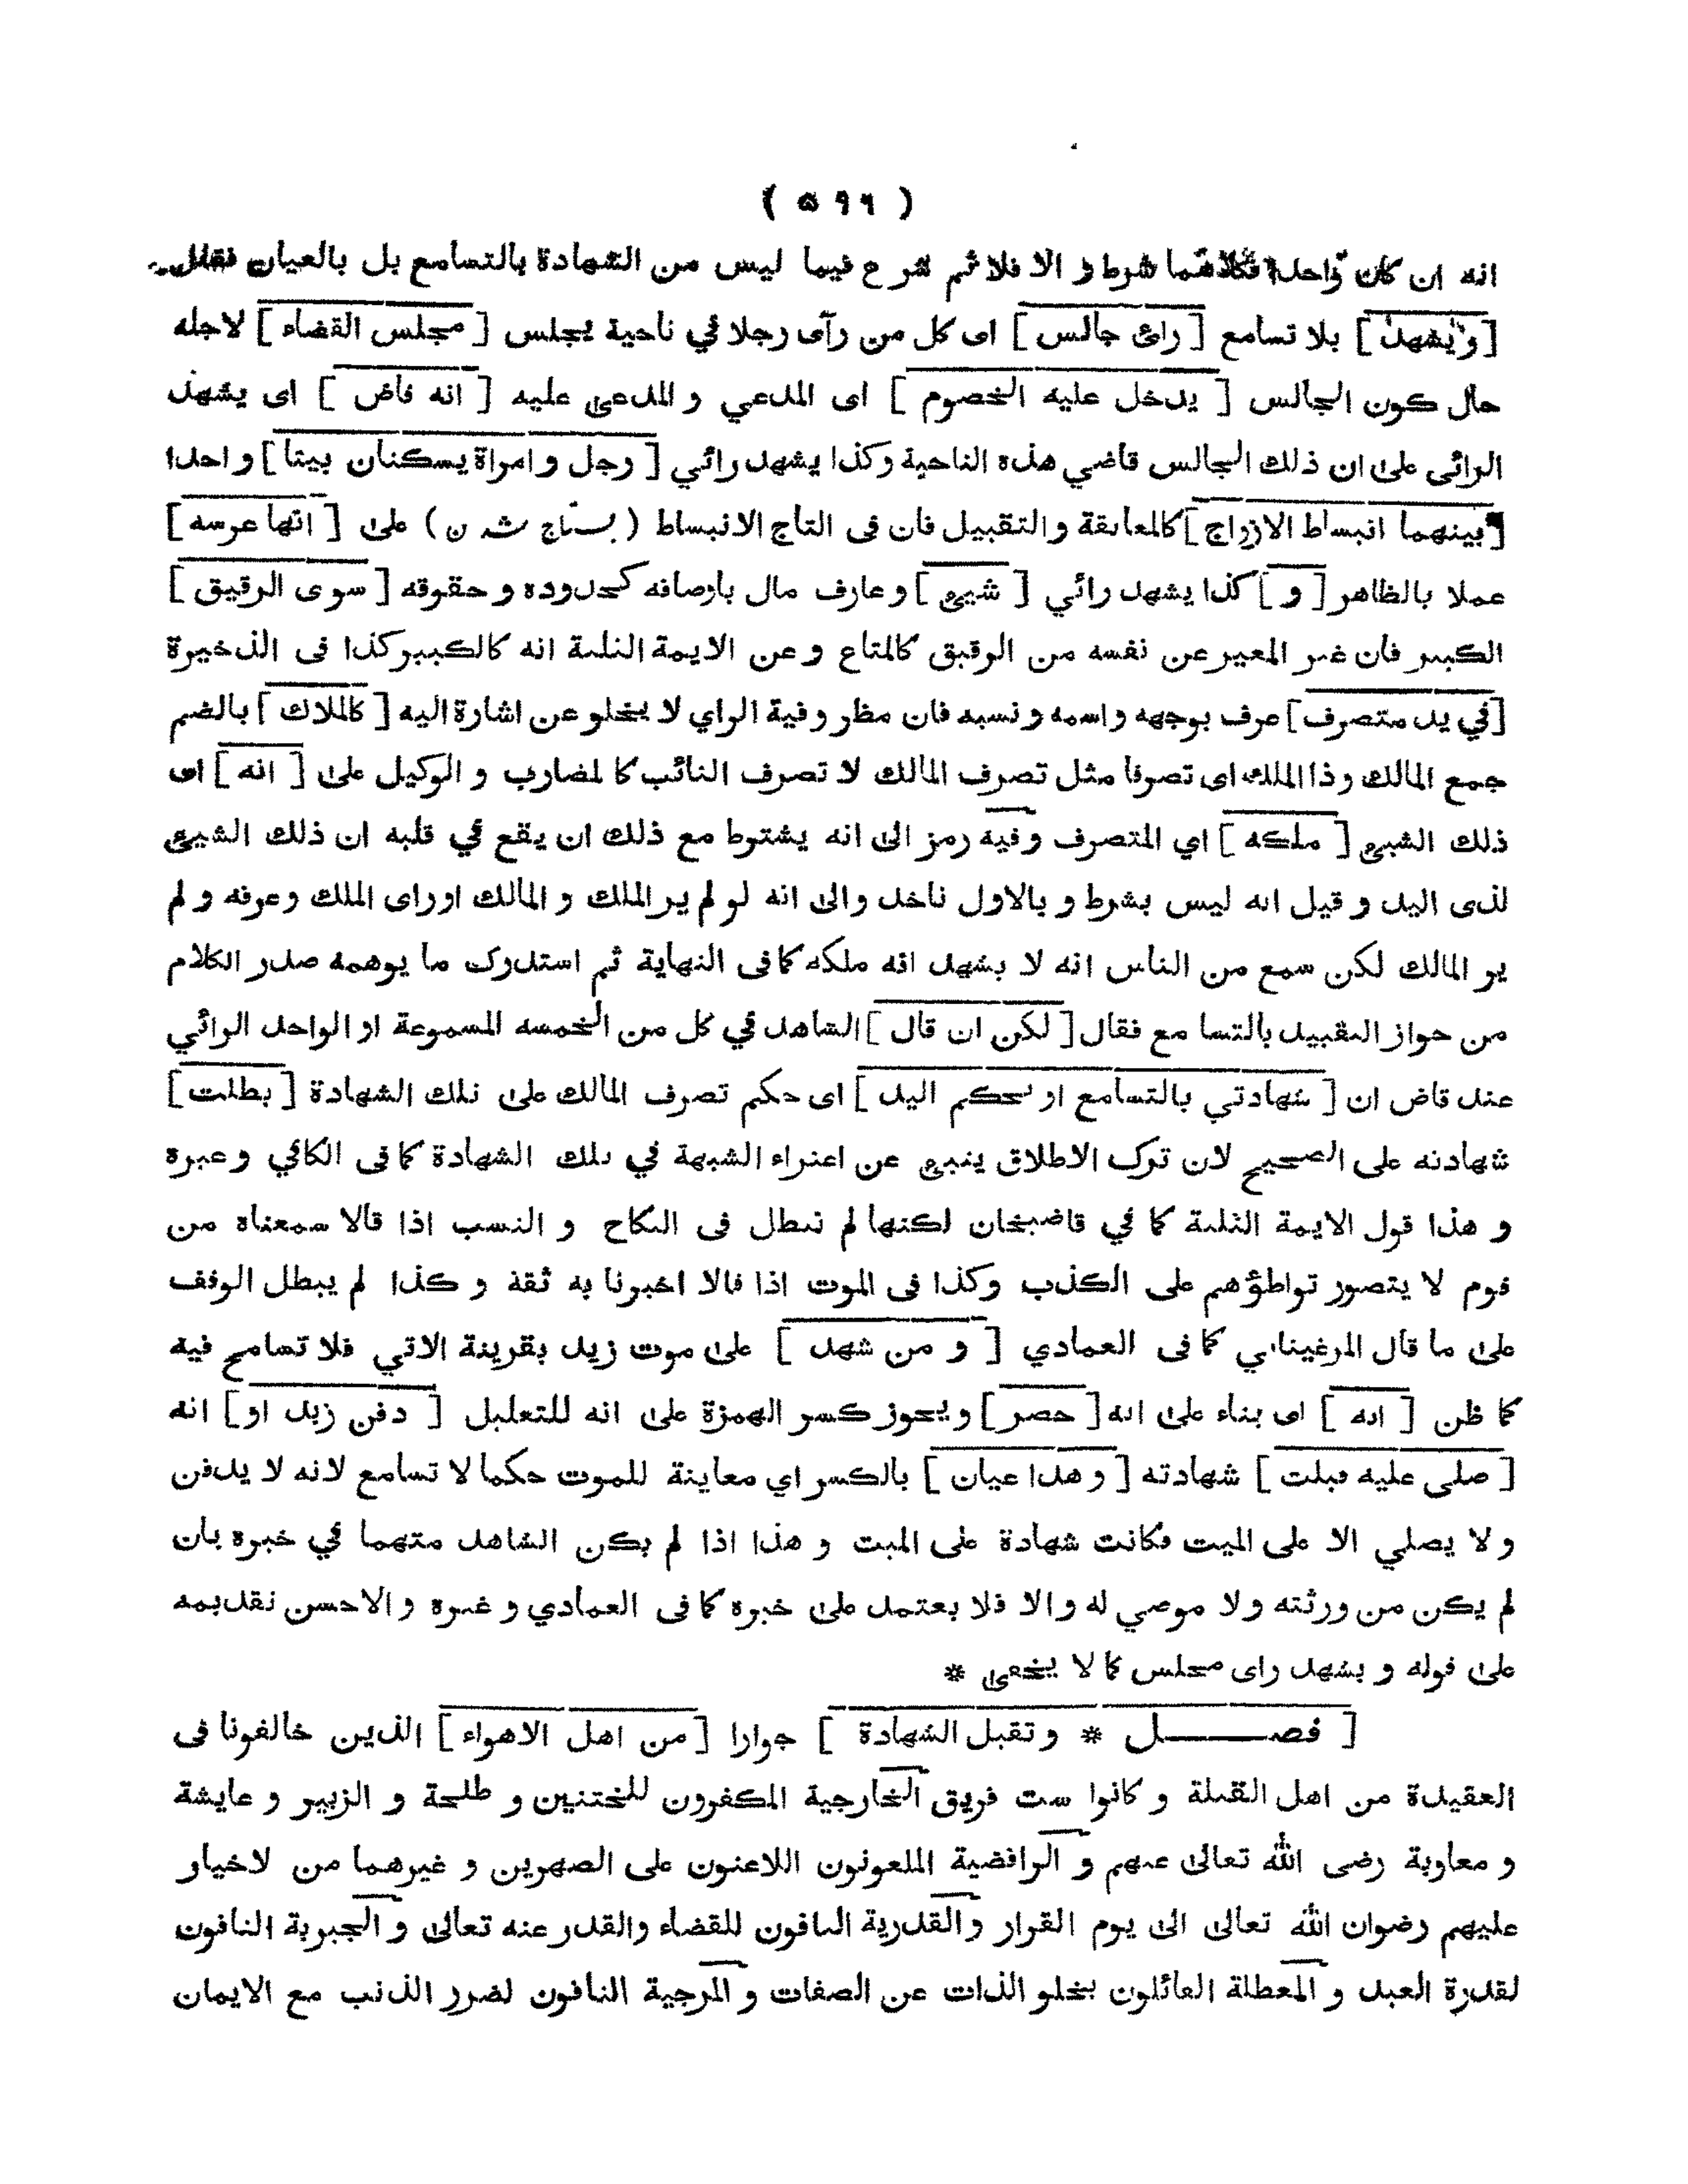 ( ٥٩٦ )
انه ان كان واحدا فكلاهما شرط و الا فلا ثم شرع فيما ليس من الشهادة بالتسامع بل بالعيان فقال
[ويشهد] بلا تسامع [رائ جالس] اى كل من رآى رجلا في ناحية يجلس [مجلس القضاء] لاجله
حال كون الجالس [يدخل عليه الخصوم] اى المدعي و المدعى عليه [انه قاض] اى يشهد
الرائى على ان ذلك الجالس قاضي هذه الناحية وكذا يشهد رائي [رجل وامراة يسكنان بيتا] واحدا
[بينهما انبساط الازواج] كالمعانقة والتقبيل فان فى التاج الانبساط ( ن) على [انها عرسه]
عملا بالظاهر [و] كذا يشهد رائي [شيئ] وعارف مال باوصافه كحدوده و حقوقه [سوى الرقيق]
الكبير فان غير المعبر عن نفسه من الرقيق كالمتاع وعن الايمة الثلثة انه كالكبير كذا فى الذخيرة
[في يد متصرف] عرف بوجهه واسمه ونسبه فان مظروفية الراي لا يخلو عن اشارة اليه [كالملاك] بالضم
جمع المالك وذا الملك اى تصرفا مثل تصرف المالك لا تصرف النائب كالمضارب و الوكيل على [انه] اى
ذلك الشيئ [ملكه] اي المتصرف وفيه رمز الى انه يشترط مع ذلك ان يقع في قلبه ان ذلك الشيئ
لذى اليد و قيل انه ليس بشرط و بالاول ناخذ والى انه لو لم ير الملك و المالك اوراى الملك وعرفه و لم
ير المالك لكن سمع من الناس انه لا يشهد انه ملكه كما فى النهاية ثم استدرك ما يوهمه صدر الكلام
من جواز التقييد بالتسامع فقال [لكن ان قال] الشاهد في كل من الخمسه المسموعة او الواحد الرائي
عند قاض ان [شهادتي بالتسامع او بحكم اليد] اى حكم تصرف المالك على تلك الشهادة [بطلت]
شهادته على الصحيح لان ترك الاطلاق ينبئ عن اعتراء الشبهة في تلك الشهادة كما فى الكافي وغيره
و هذا قول الايمة الثلثة كما في قاضيخان لكنها لم تبطل فى النكاح و النسب اذا قالا سمعناه من
قوم لا يتصور تواطؤهم على الكذب وكذا فى الموت اذا قالا اخبرنا به ثقة و كذا لم يبطل الوقف
على ما قال المرغيناني كما فى العمادي [و من شهد] على موت زيد بقرينة الاتي فلا تسامح فيه
كما ظن [انه] اى بناء على انه [حضر] ويجوز كسر الهمزة على انه للتعليل [دفن زيد او] انه
[صلى عليه قبلت] شهادته [وهذا عيان] بالكسر اي معاينة للموت حكما لا تسامع لانه لا يدفن
و لا يصلي الا على الميت فكانت شهادة على الميت و هذا اذا لم يكن الشاهد متهما في خبره بان
لم يكن من ورثته ولا موصي له والا فلا يعتمد على خبره كما فى العمادي و غيره والاحسن تقديمه
على قوله و يشهد راى مجلس كما لا يخفى *
[فصــــل * وتقبل الشهادة] جوازا [من اهل الاهواء] الذين خالفونا فى
العقيدة من اهل القبلة و كانوا ست فريق الخارجية المكفرون للختنين و طلحة و الزبير و عايشة
و معاوية رضى الله تعالى عنهم و الرافضية الملعونون اللاعنون على الصهرين و غيرهما من لاخيار
عليهم رضوان الله تعالى الى يوم القرار والقدرية النافون للقضاء والقدر عنه تعالى و الجبرية النافون
لقدرة العبد و المعطلة القائلون بخلو الذات عن الصفات و المرجية النافون لضرر الذنب مع الايمان